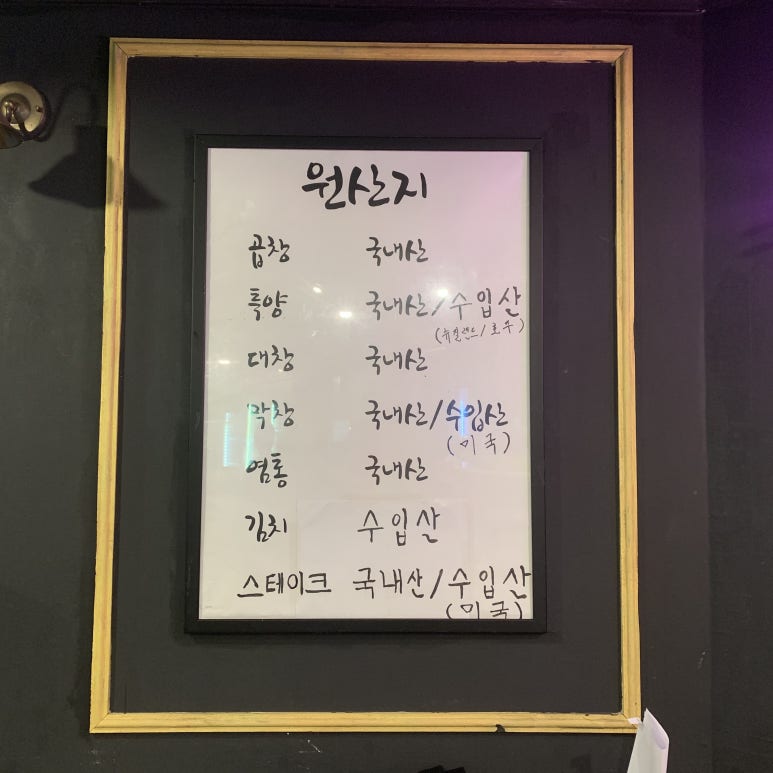 원산지
곱창 국내산
특양 국내산/수입산
(뉴질랜드/호주)
대창 국내산
막창 국내산/수입산
(미국)
염통 국내산
김치 수입산
스테이크 국내산/수입산
(미국)